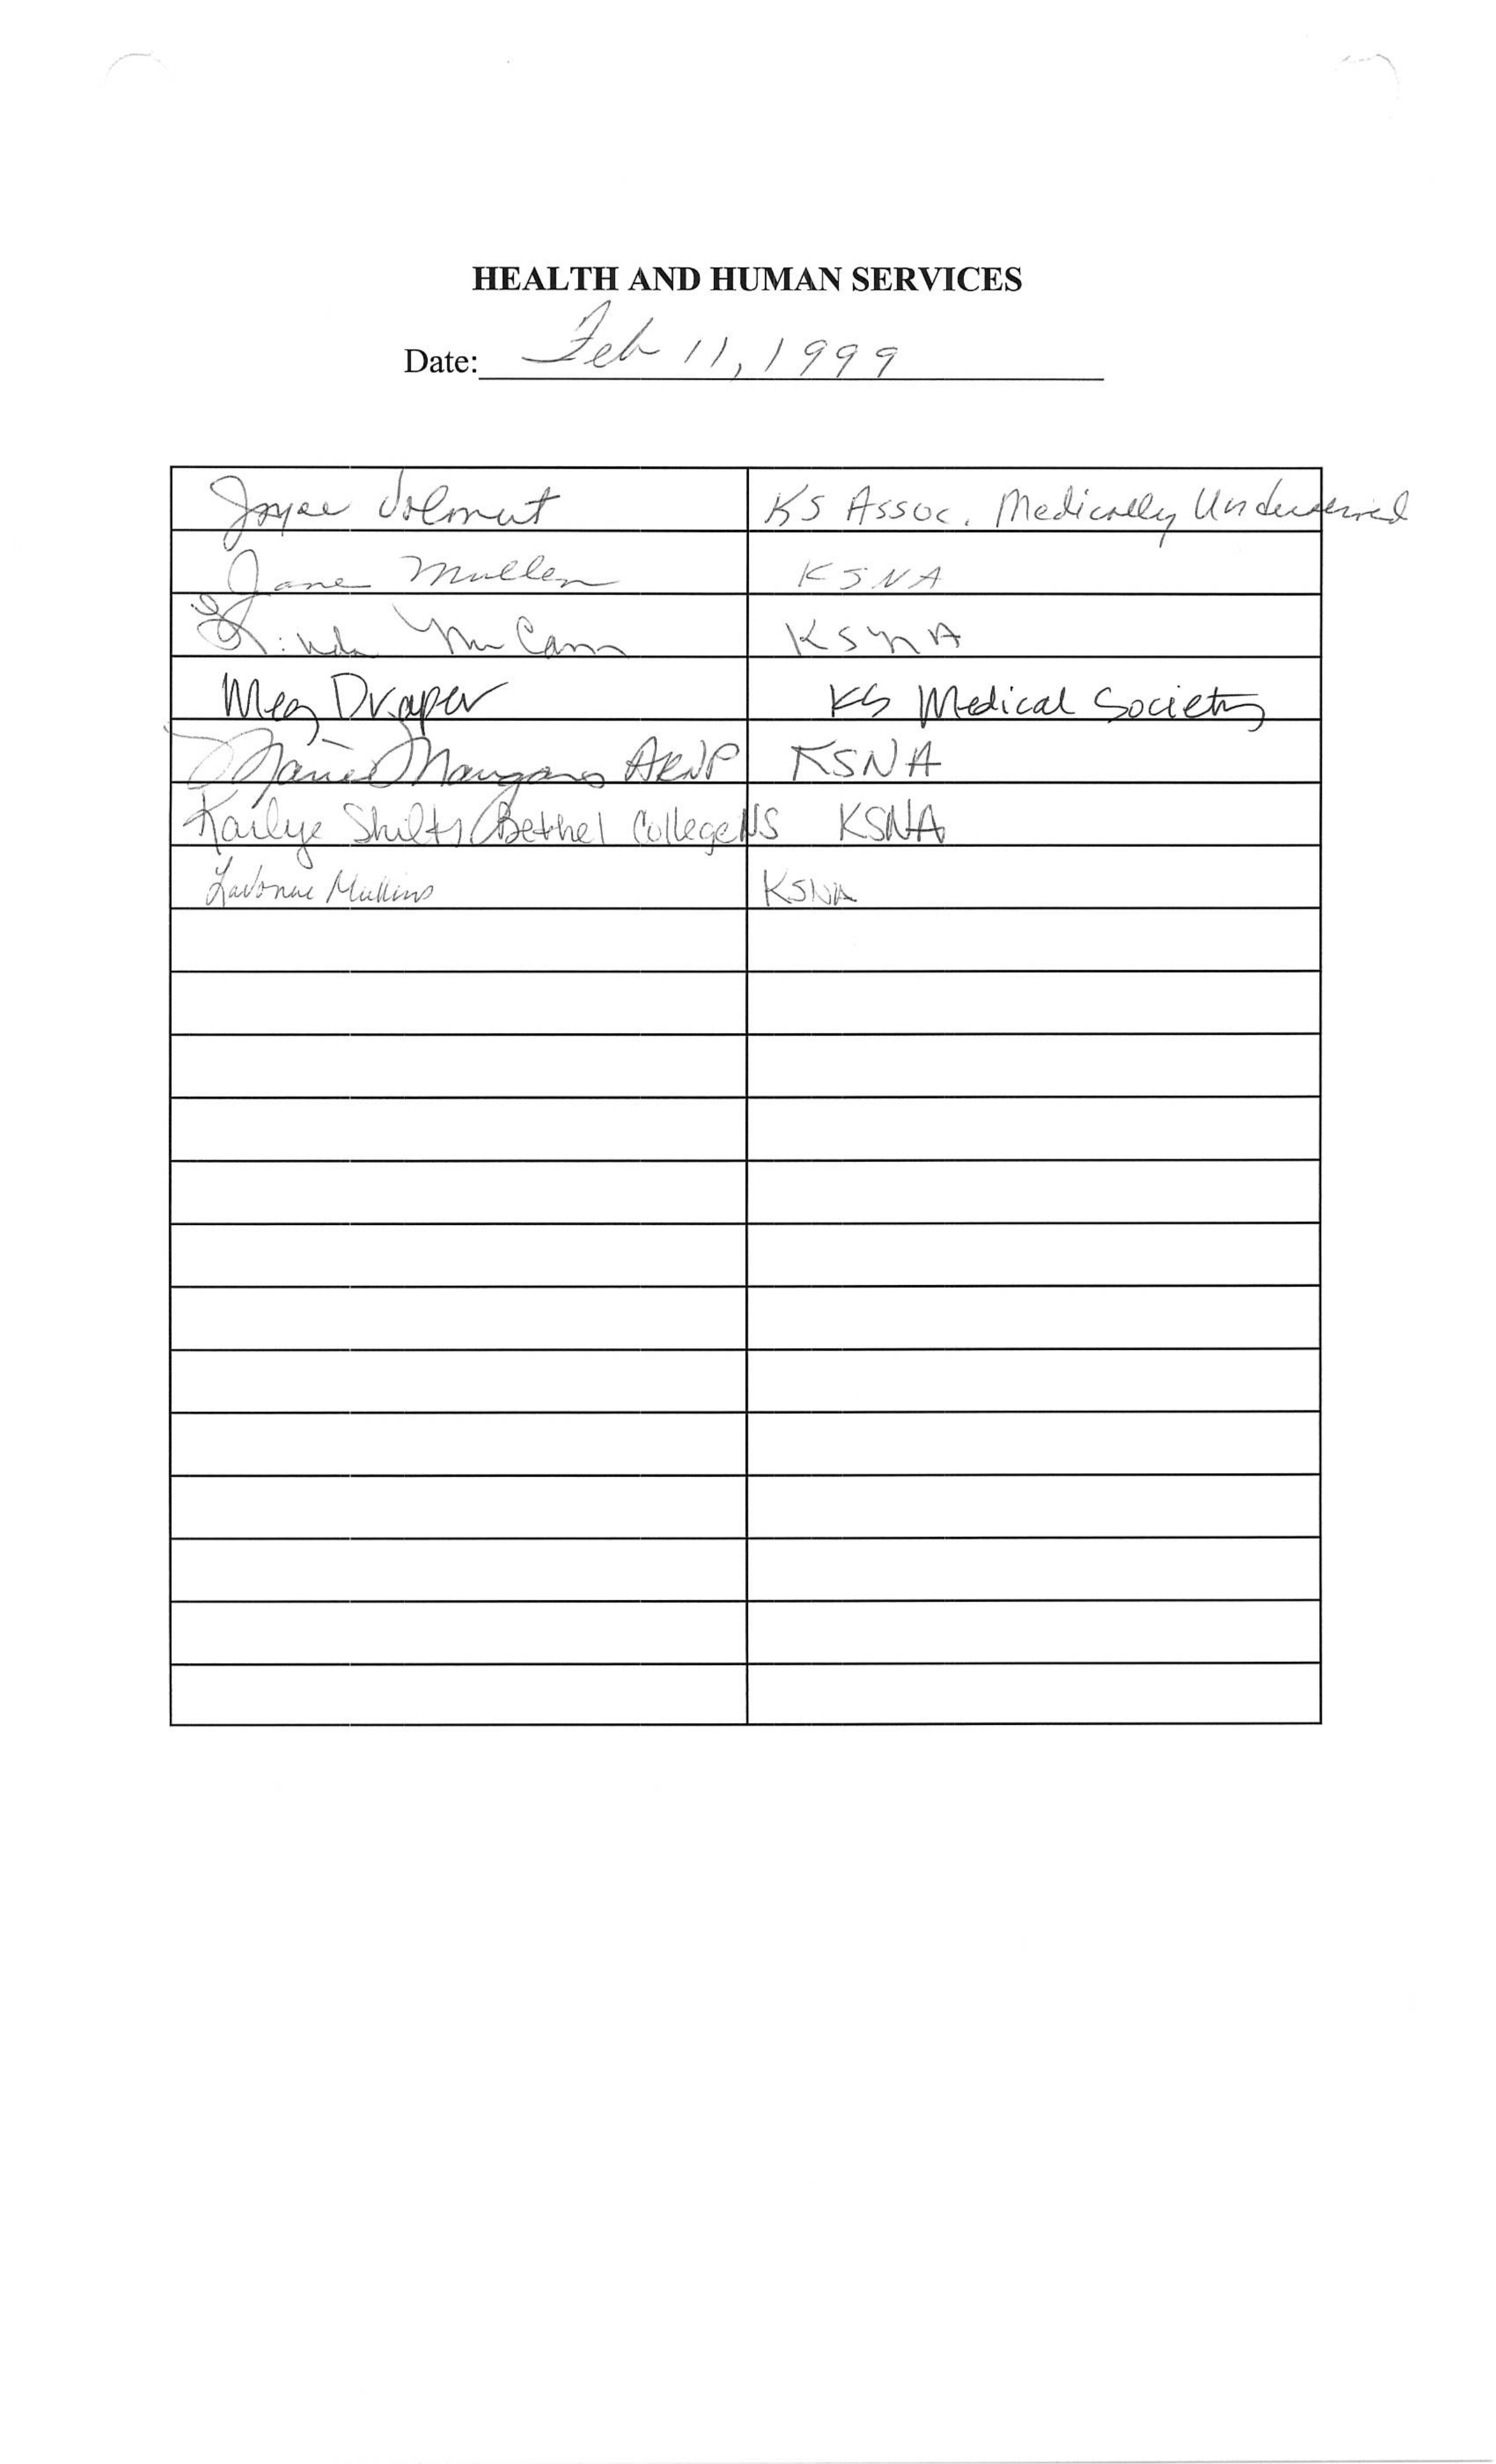 HEALTH AND HUMAN SERVICES
Date: Feb 11, 1999
Joyce Volmut KS Assoc. Medically Underserved
Jane Mullen KSNA
Linda McCann KSNA
Meg Draper KS Medical Society
Mangano ARNP KSNA
Kailye Shilts/Bethel College NS KSNA
LaVonne Mullins KSNA